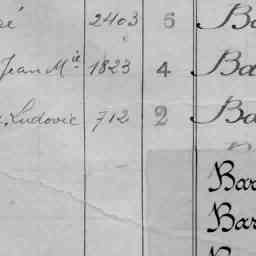 é 2403 5 Ba
Jean Mie 1823 4 Ba
Ludovic 712 2 Ba
Bar
Bar